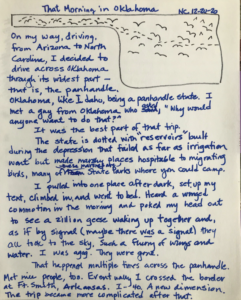 That Morning in Oklahoma
NC, 12-20-20
On my way, driving,
from Arizona to North
Carolina, I decided to
drive across Oklahoma
through its widest part —
that is, the panhandle.
Oklahoma, like Idaho, being a panhandle state. I
met a guy from Oklahoma who said, "Why would
anyone want to do that?"
It was the best part of that trip.
The state is dotted with reservoirs built
during the depression that failed as far as irrigation
went but made places hospitable to migrating
birds, many State Parks where you could camp.
I pulled into one place after dark, set up my
tent, climbed in, and went to bed. Heard a unified
commotion in the morning and poked my head out
to see a zillion geese waking up together and,
as if by signal (maybe there was a signal) they
all took to the sky, such a flurry of wings and
water. I was agog. They were gone.
That happened multiple times across the panhandle.
Met nice people, too. Eventually I crossed the border
at Ft. Smith, Arkansas. I-40. A new dimension.
The trip became more complicated after that.